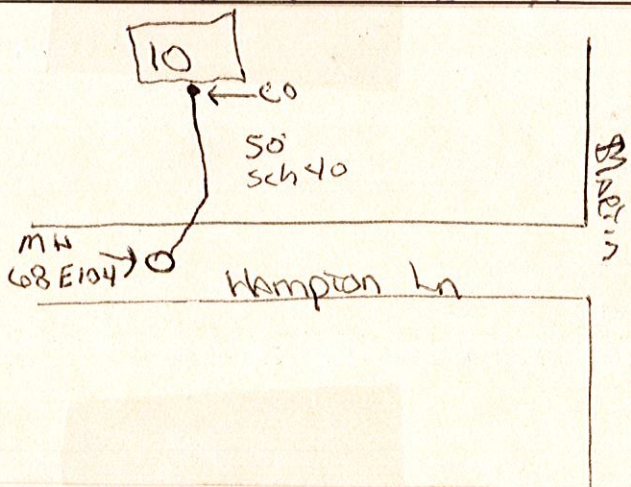 10
CO
50'
Sch 40
MH
68E104
Hampton Ln